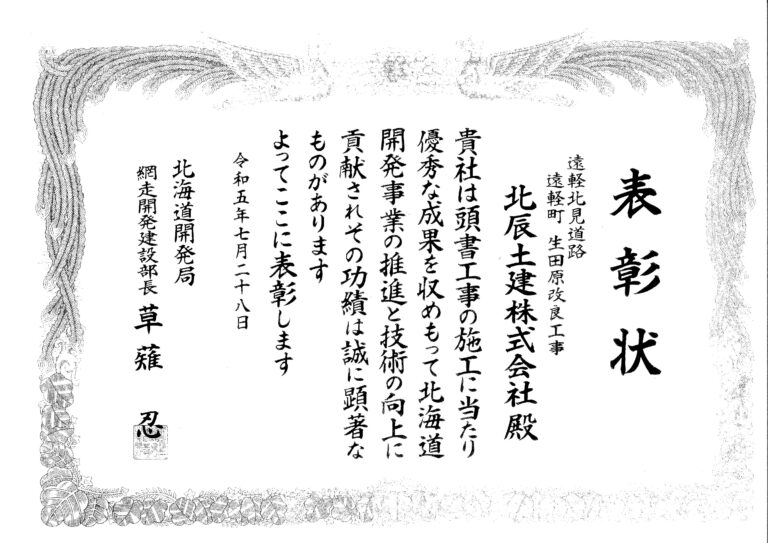 表彰状
遠軽北見道路
遠軽町 生田原改良工事
北辰土建株式会社 殿
貴社は頭書工事の施工に当たり
優秀な成果を収めもって北海道
開発事業の推進と技術の向上に
貢献されその功績は誠に顕著な
ものがあります
よってここに表彰します
令和五年七月二十八日
北海道開発局
網走開発建設部長 草薙 忍